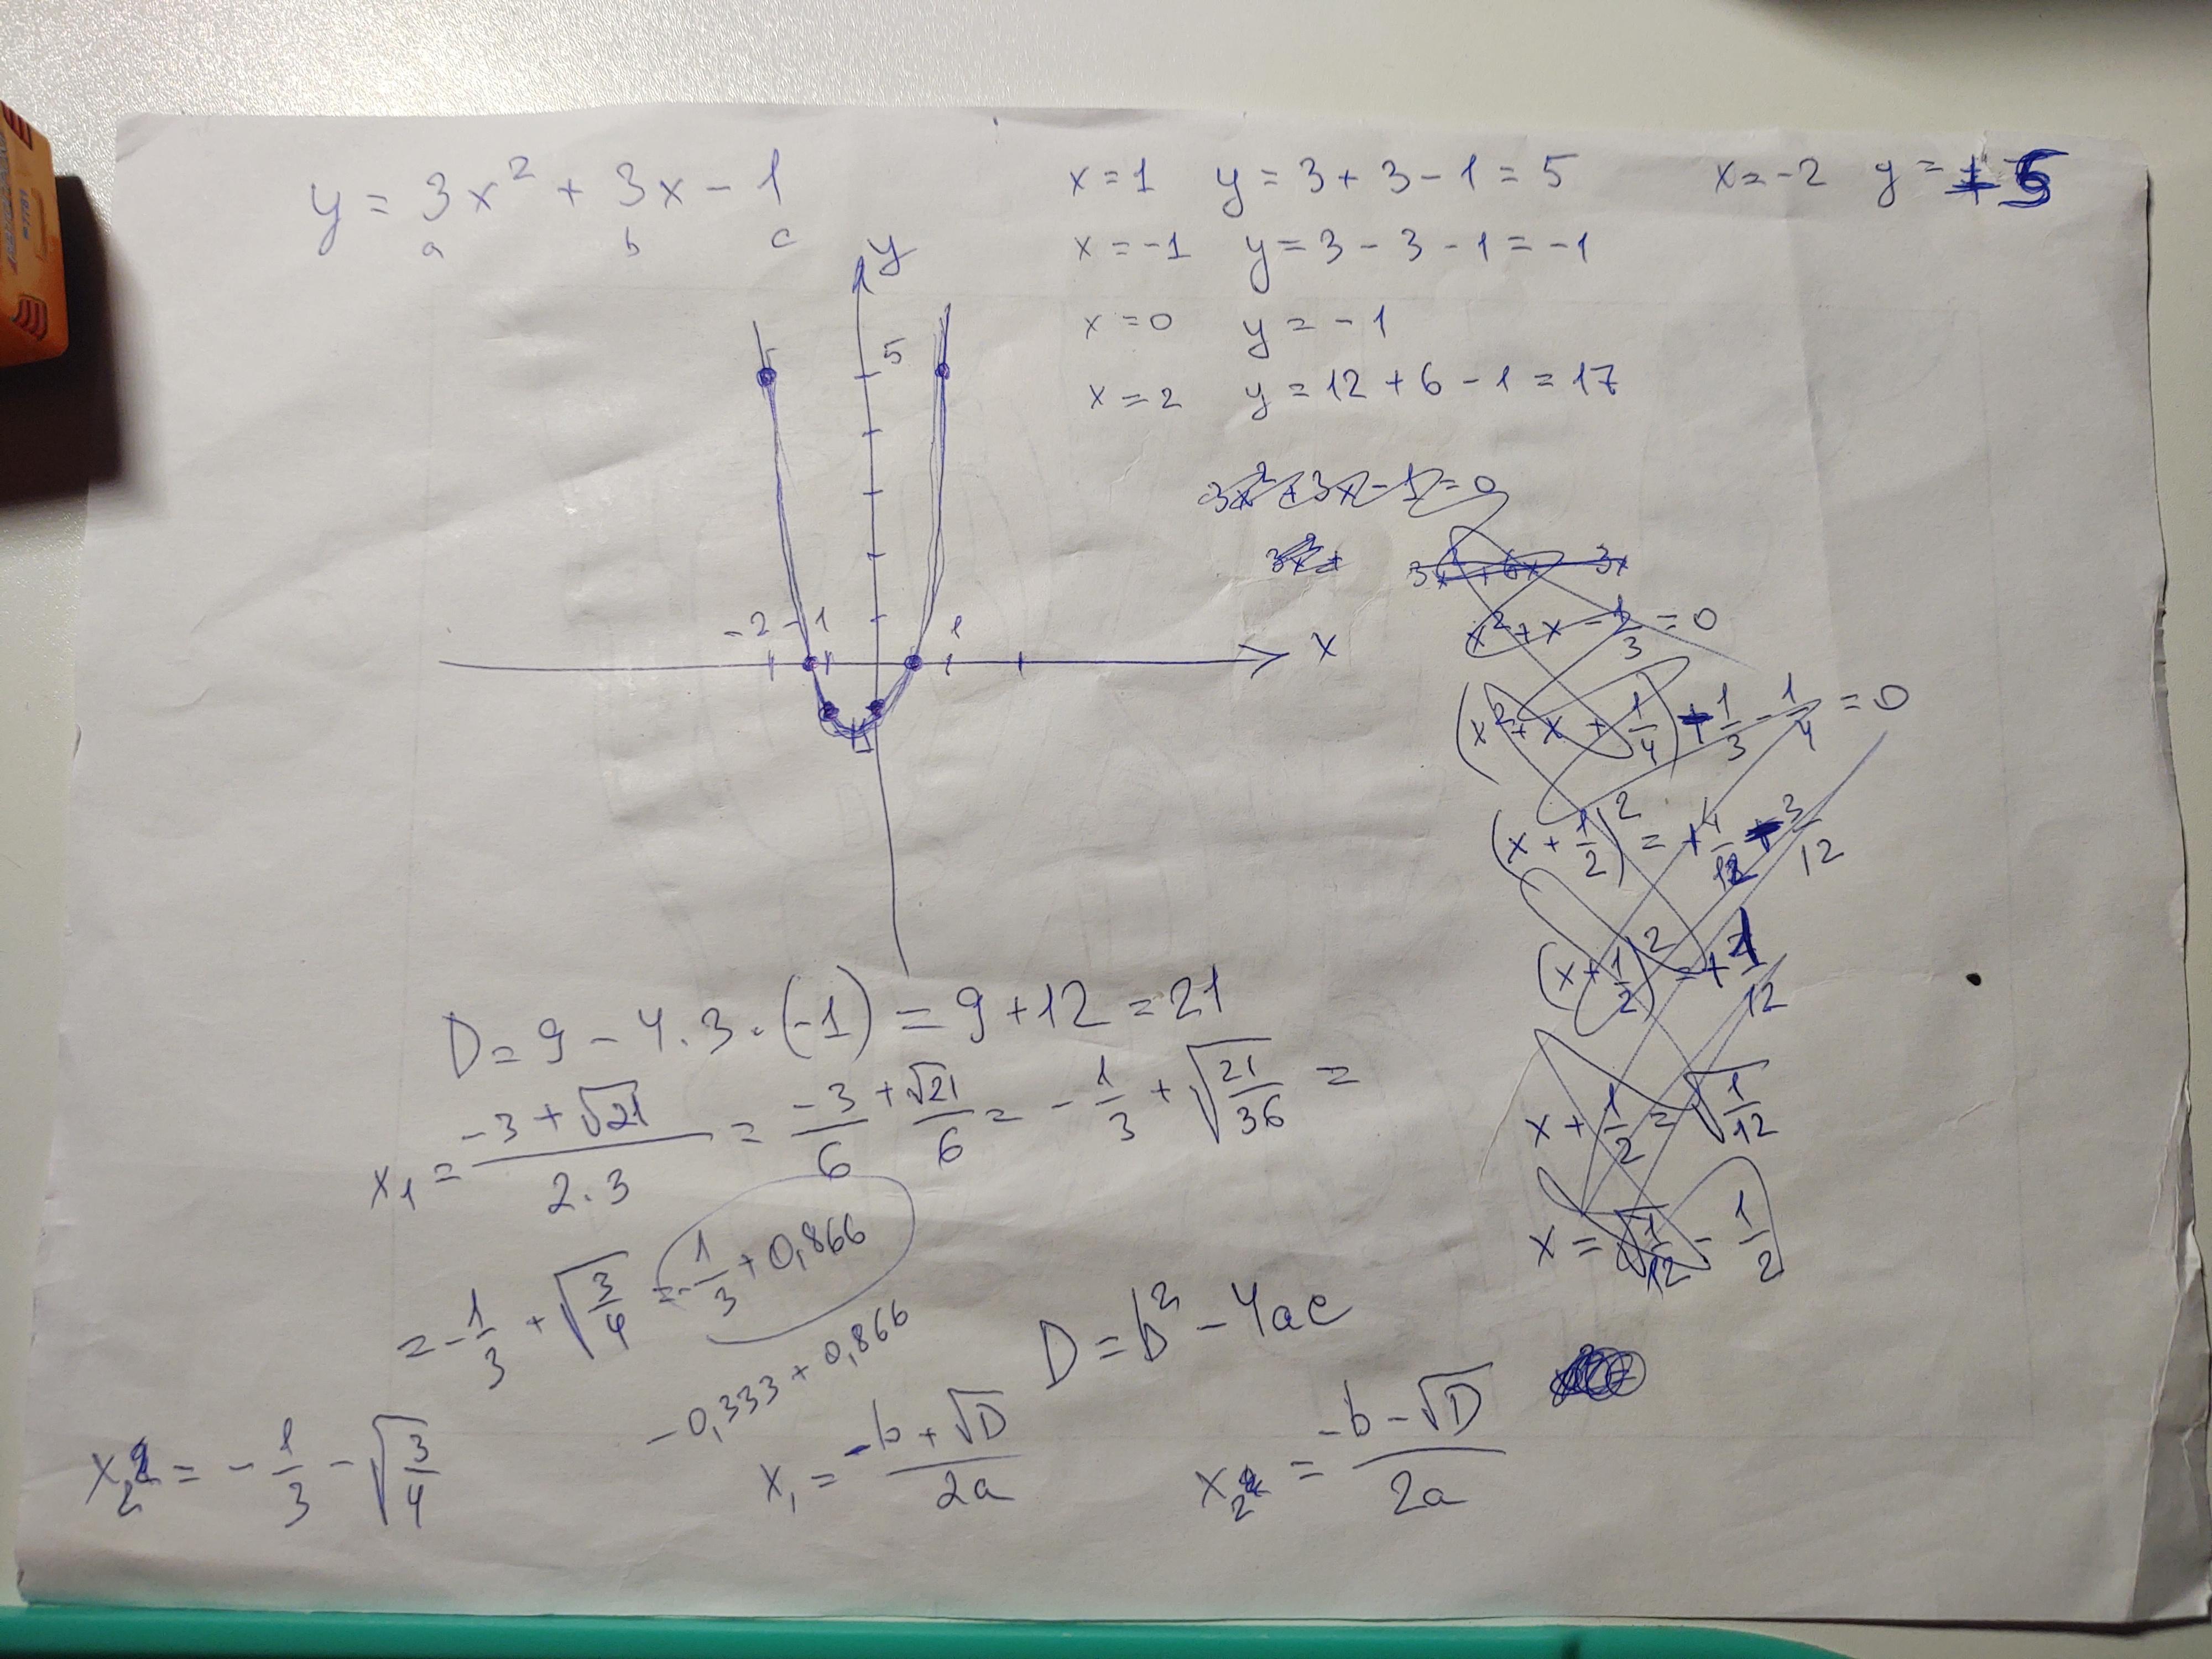 y = 3x² + 3x - 1
a b c
x = 1 y = 3 + 3 - 1 = 5
x = -2 y = 5
x = -1 y = 3 - 3 - 1 = -1
x = 0 y = -1
x = 2 y = 12 + 6 - 1 = 17
y
5
-2 -1 1
x
3x² + 3x - 1 = 0
x² + x - 1/3 = 0
(x² + x + 1/4) - 1/3 - 1/4 = 0
(x + 1/2)² = + 4/12 + 3/12
(x + 1/2)² = + 7/12
x + 1/2 = √(1/12)
x = √(1/12) - 1/2
D = 9 - 4 · 3 · (-1) = 9 + 12 = 21
x₁ = (-3 + √21)/(2 · 3) = -3/6 + √21/6 = -1/3 + √(21/36) =
= -1/3 + √(3/4) = -1/3 + 0,866
-0,333 + 0,866
D = b² - 4ac
x₂ = -1/3 - √(3/4)
x₁ = (-b + √D)/2a
x₂ = (-b - √D)/2a